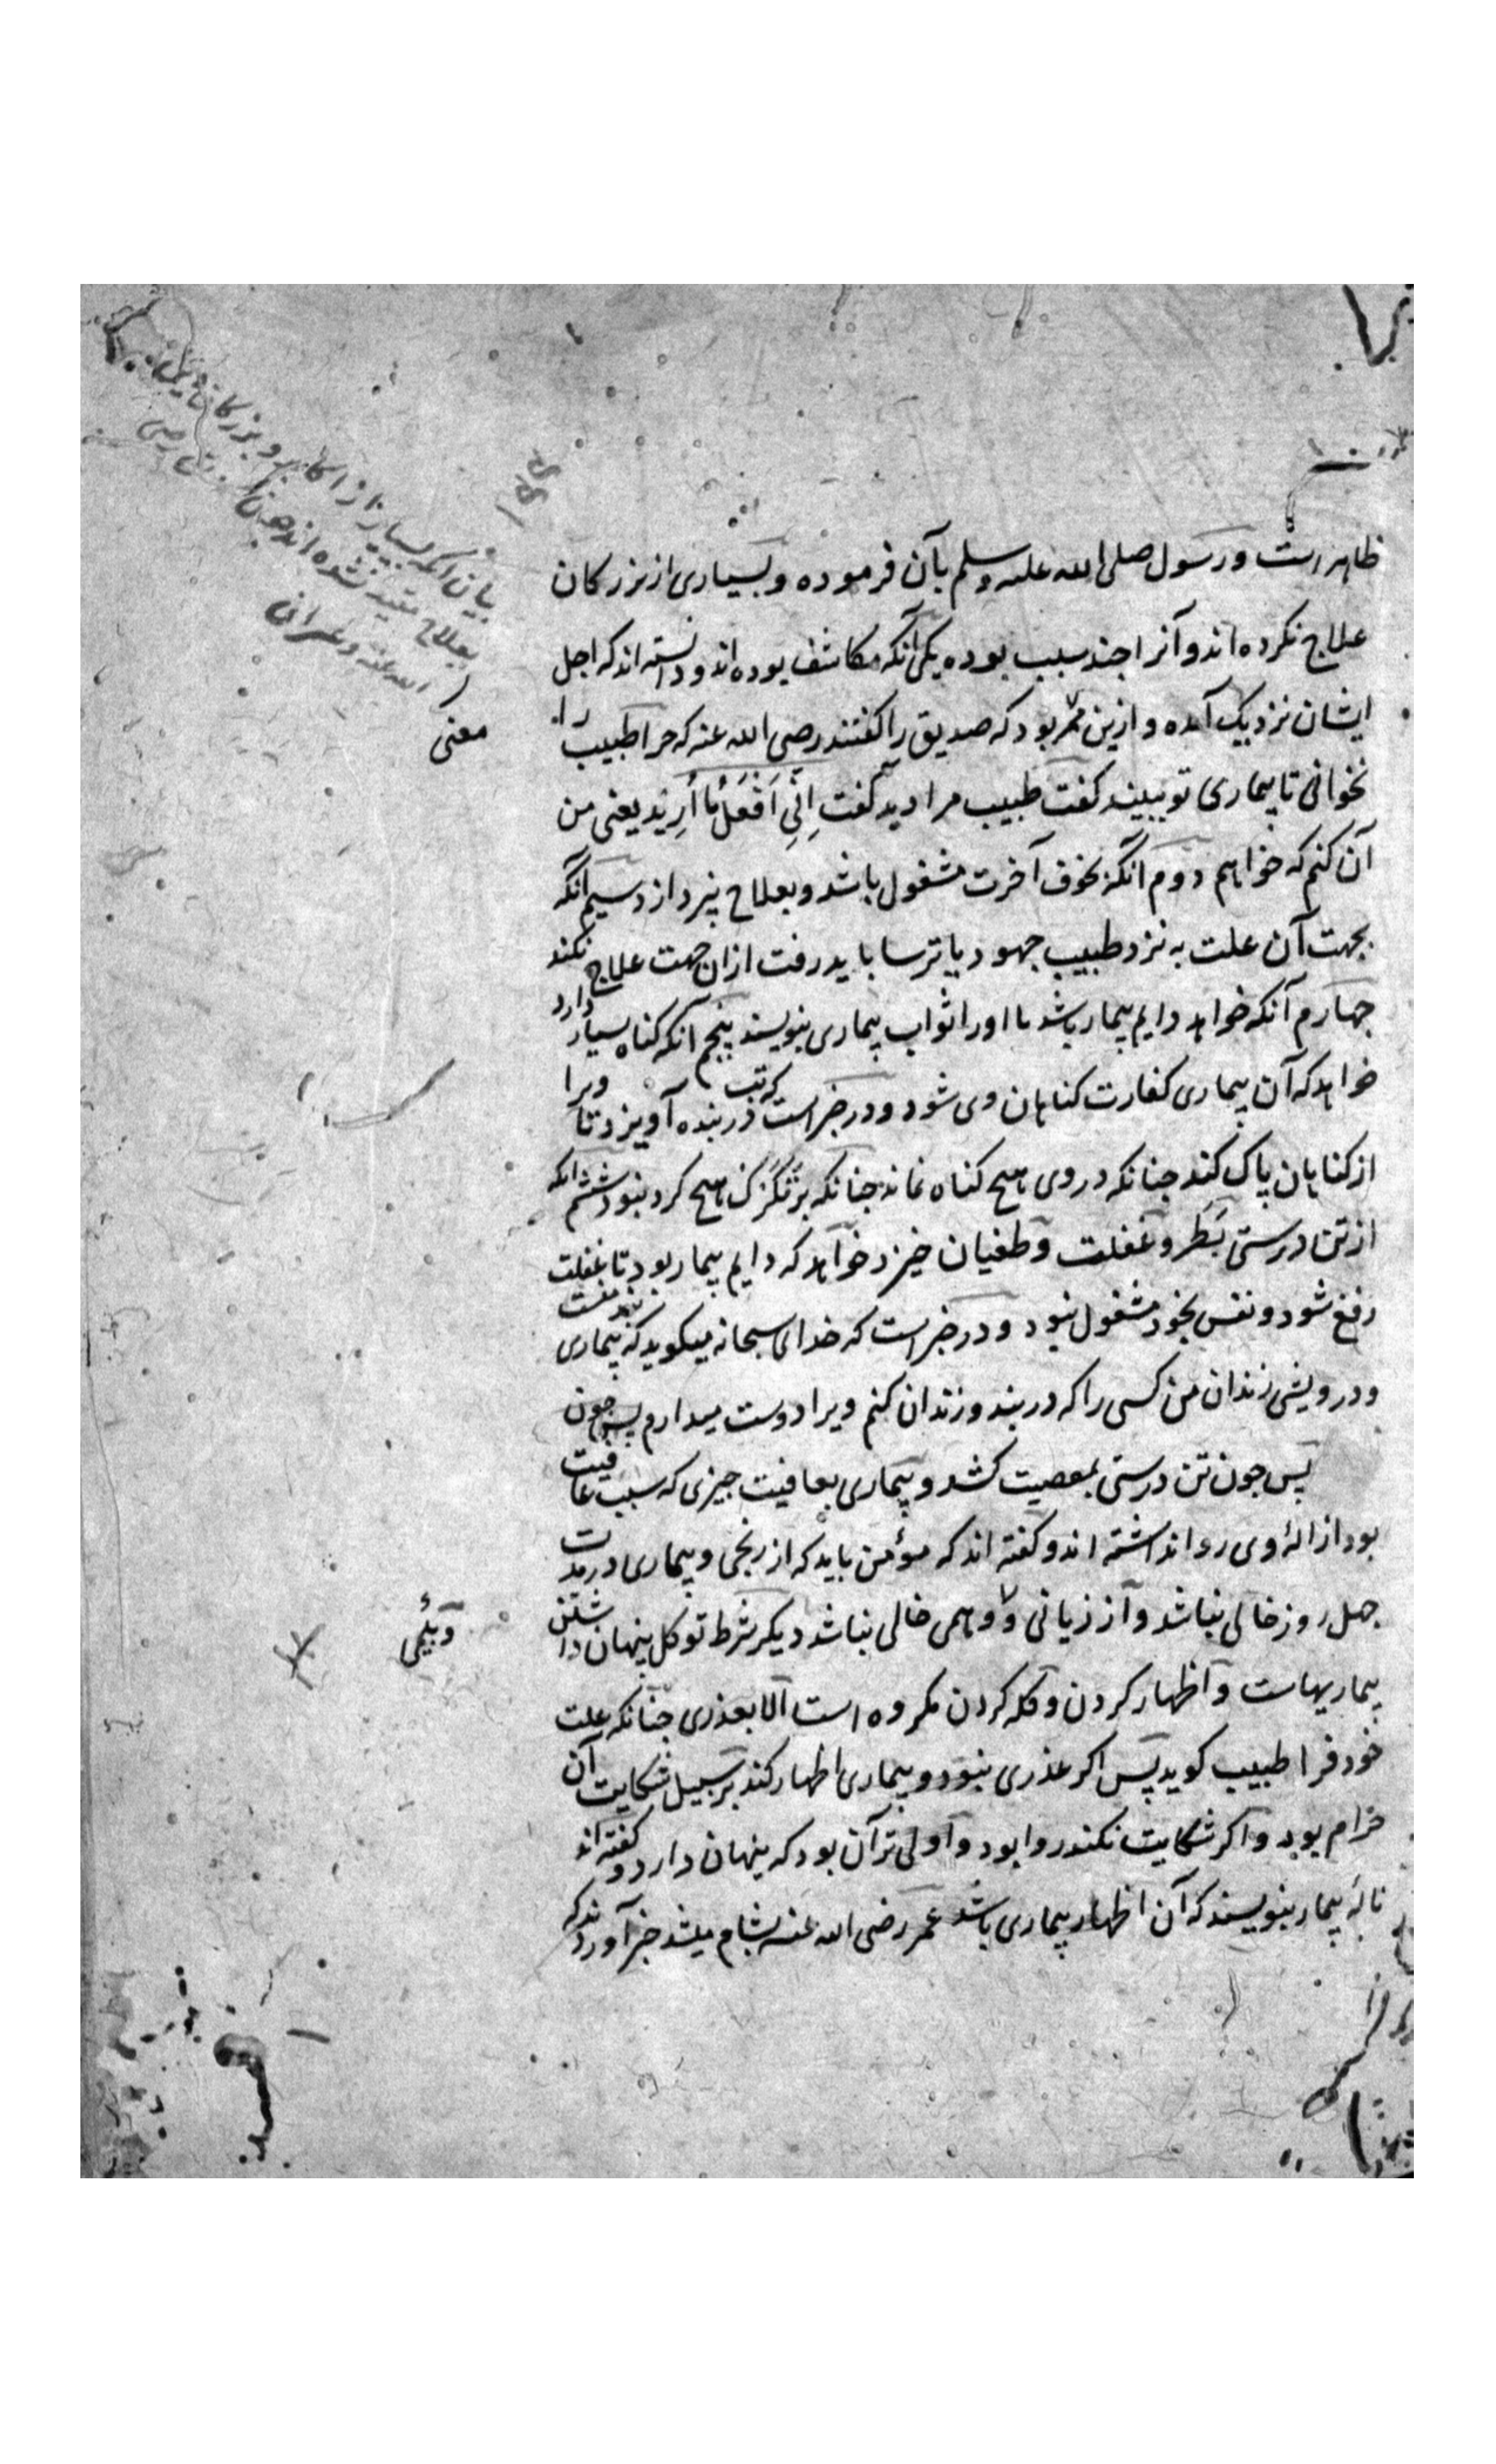 ظاهر است و رسول صلی الله علیه وسلم بآن فرموده و بسیاری از بزرکان
علاج نکرده اند و آنرا جند سبب بوده یکی آنکه مکاشف بوده اند و دانسته اند که اجل
ایشان نزدیک آمده و ازین بود که صدیق را کفتند رضی الله عنه که جرا طبیب را
نخوانی تا بیماری تو ببیند کفت طبیب مرا دید کفت اِنّی اَفْعَلُ ما اُرِید یعنی من
آن کنم که خواهم دوم آنکه بخوف آخرت مشغول باشد و بعلاج نپردازد سیم آنکه
بجهت آن علت به نزد طبیب جهود یا ترسا باید رفت ازان جهت علاج نکند
جهارم آنکه خواهد دایم بیمار باشد تا او را ثواب بیماری بنویسند پنجم آنکه کناه بسیار دارد
خواهد که آن بیماری کفارت کناهان وی شود و در خبر است که تب در بنده آویزد تا ویرا
از کناهان پاک کند جنانکه در وی هیج کناه نماند جنانکه بر تکرک هیج کرد نبود ششم انکه
از تن درستی بَطَر و غفلت و طغیان خیزد خواهد که دایم بیمار بود تا بغفلت
رفع شود و نفس بخود مشغول نبود و در خبر است که خدای سبحانه میکوید که بیماری
و درویشی زندان من کسی را که در بند و زندان کنم ویرا دوست میدارم پس جون
پس جون تن درستی بمعصیت کشد و بیماری بعافیت جیزی که سبب عافیت
بود ازالهٔ وی روا نداشته اند و کفته اند که مؤمن باید که از رنجی و بیماری در مدت
جهل روز خالی نباشد و از زیانی و وهمی خالی نباشد دیکر شرط توکل پنهان داشتن
بیماریهاست و اظهار کردن و کله کردن مکروه است الا بعذری جنانکه علت
خود فرا طبیب کوید پس اکر عذری نبود و بیماری اظهار کند بر سبیل شکایت آن
حرام بود و اکر شکایت نکند روا بود و اولی تر آن بود که پنهان دارد و کفته اند
نالهٔ بیمار بنویسند که آن اظهار بیماری باشد عمر رضی الله عنه بشام میشد خبر آوردند که
بیان آنکه بسیار از اکابر و بزرکان
بعلاج مقید نشده اند
الله عنه و غیران
معنی